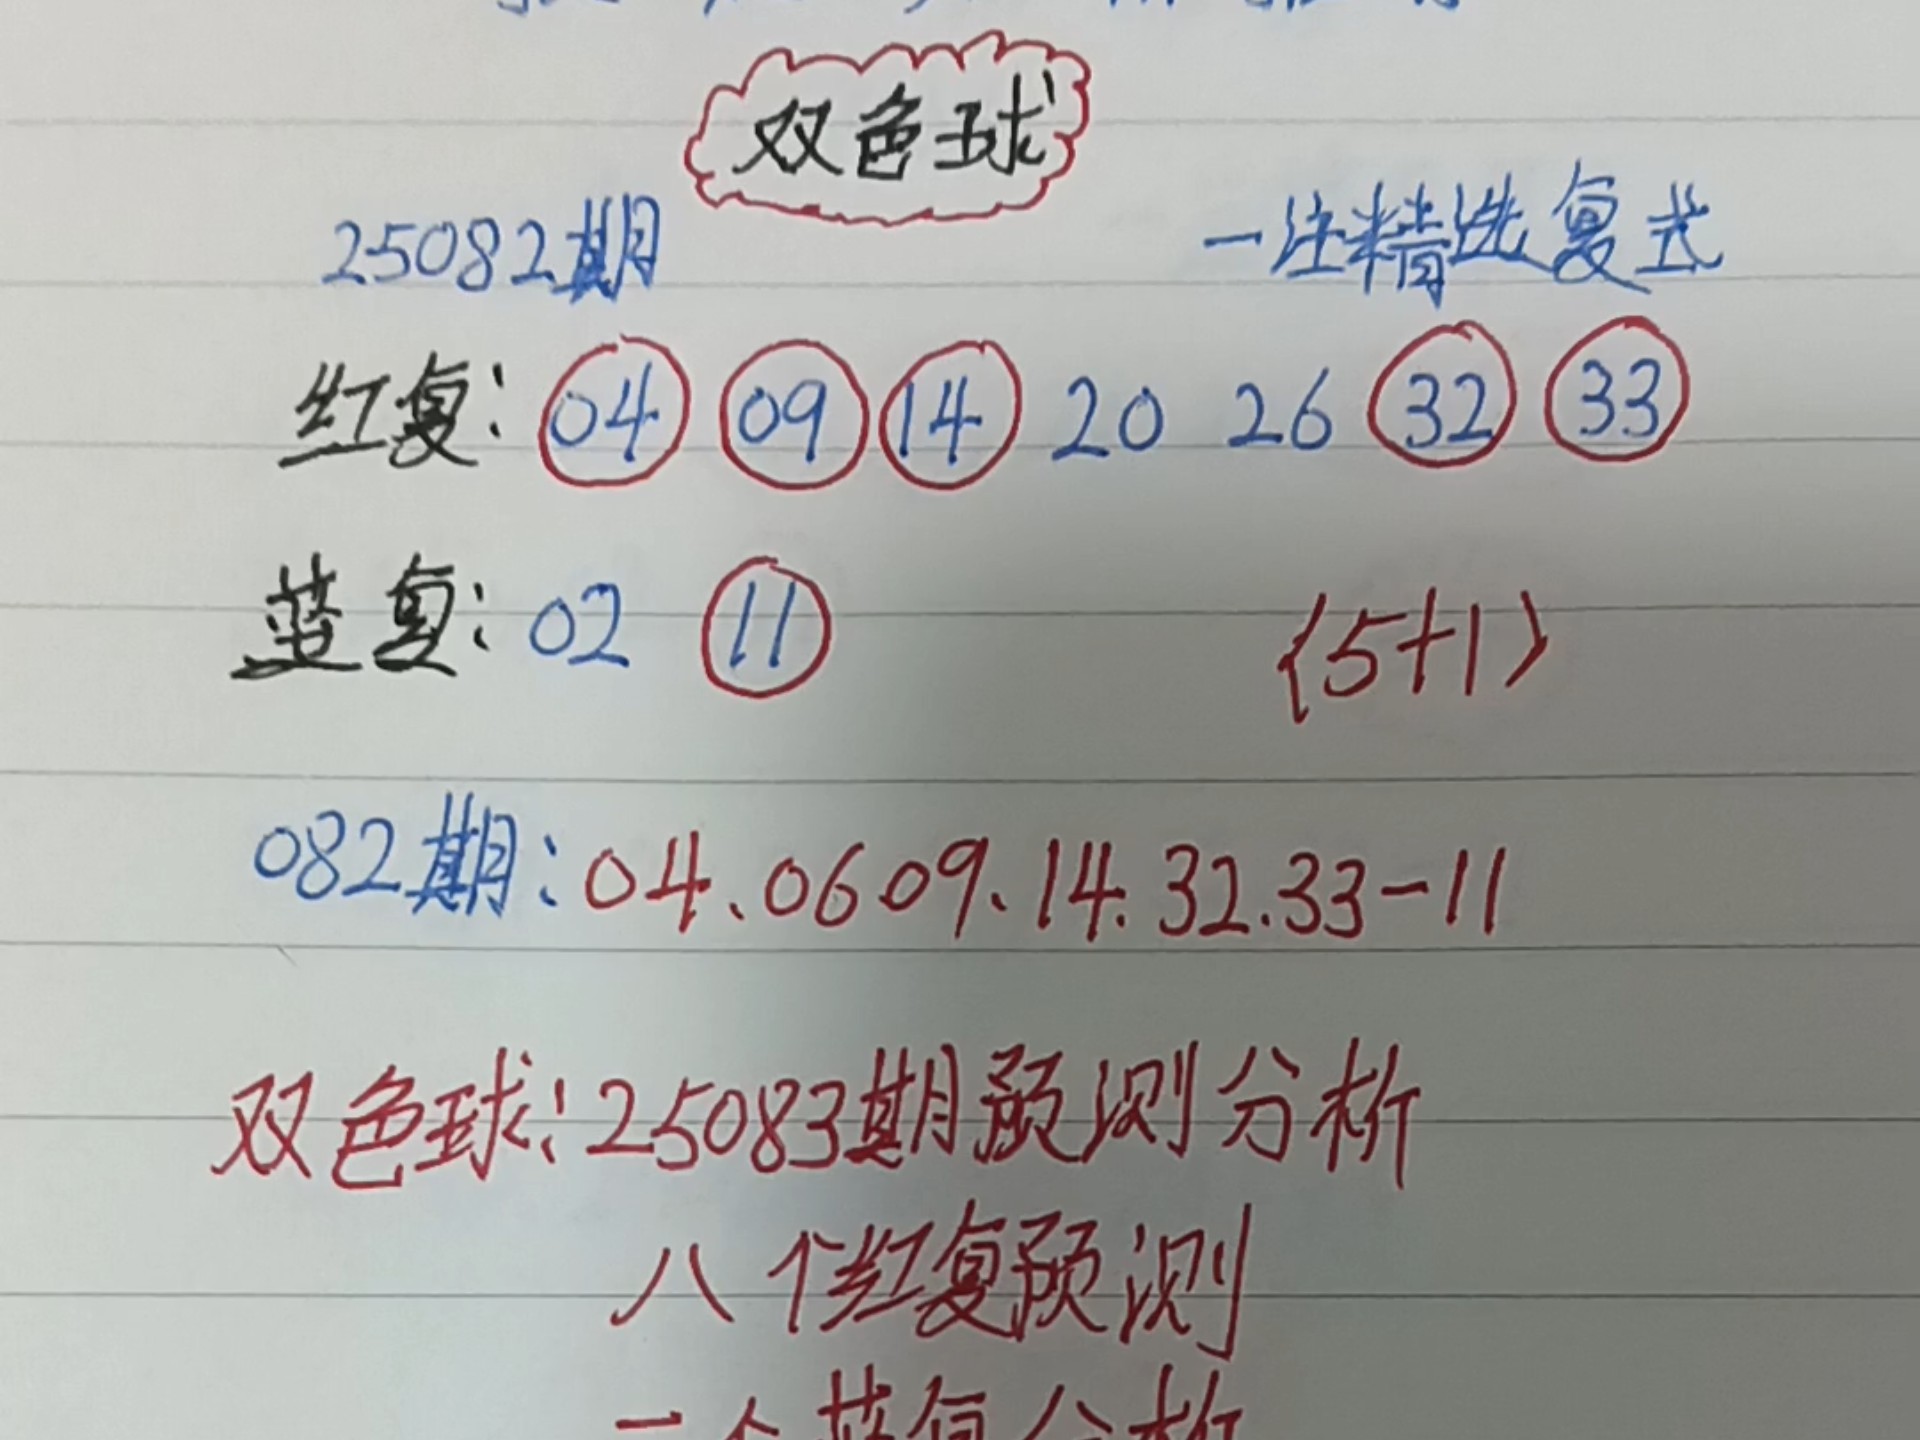 双色球
25082期 一注精选复式
红复: 04 09 14 20 26 32 33
蓝复: 02 11 〈5+1〉
082期: 04.06 09.14.32.33-11
双色球: 25083期预测分析
八个红复预测
蓝复分析